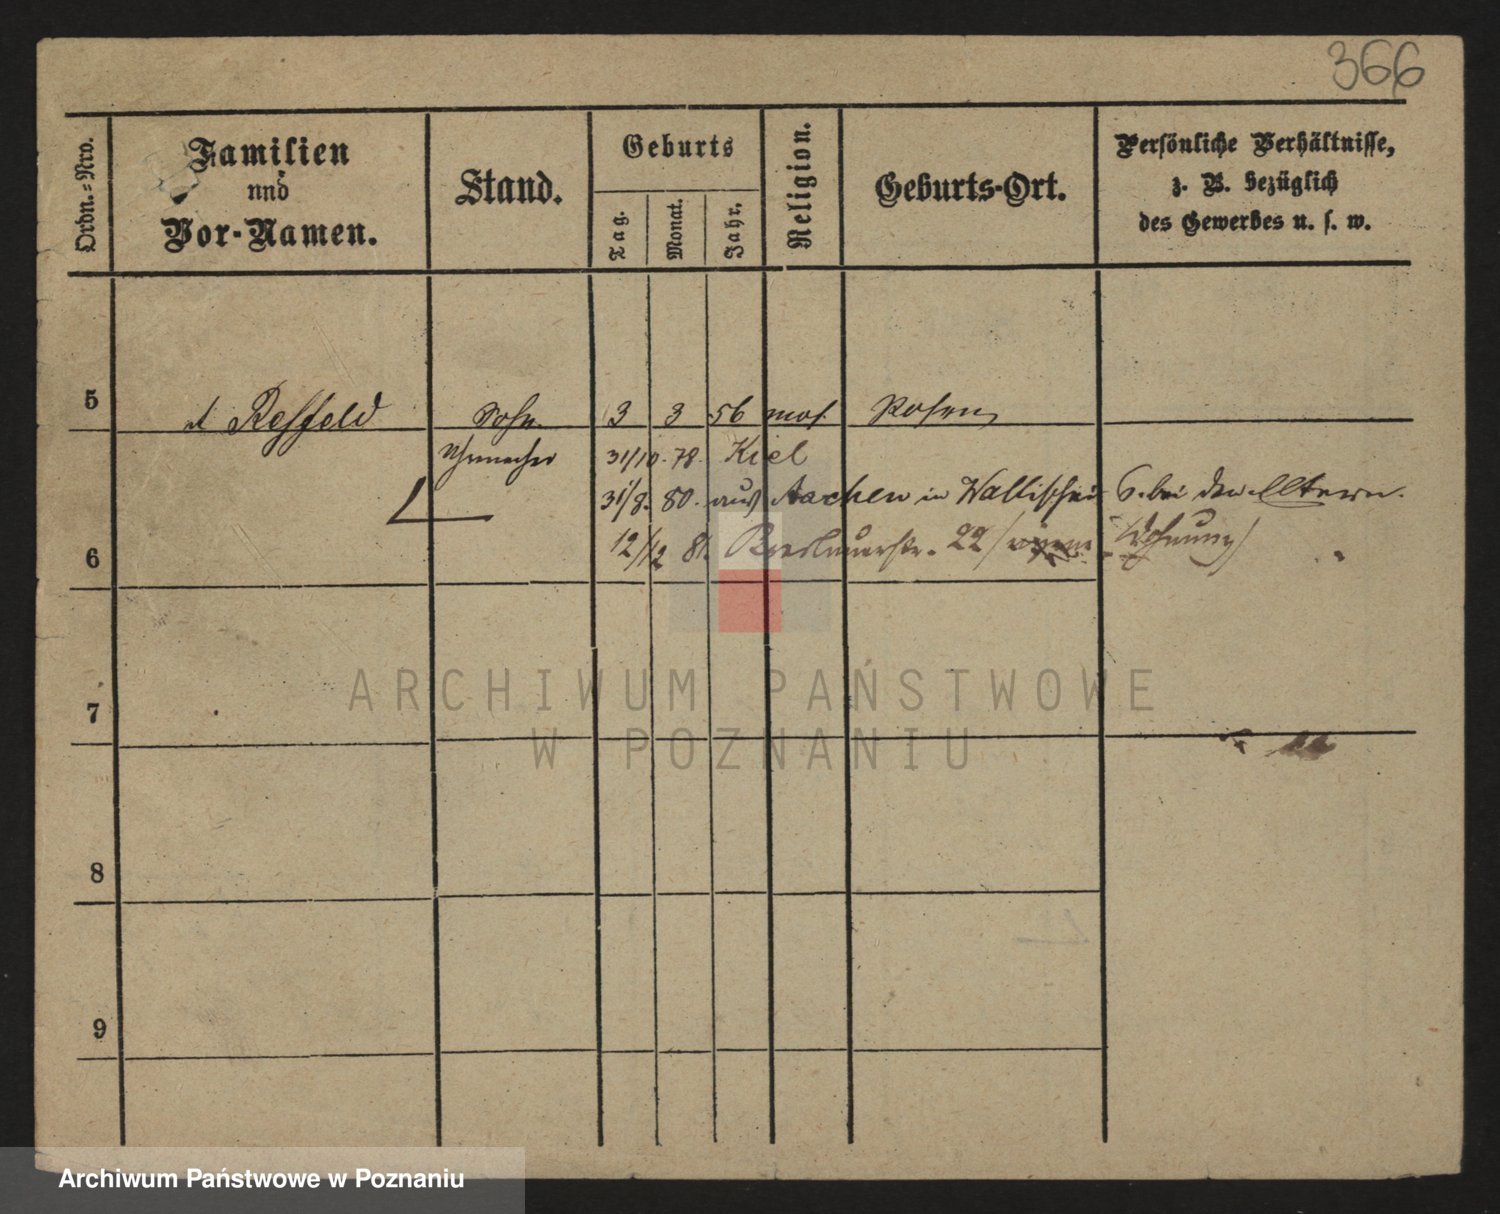 366
Ordn.=Nro.
Familien
und
Vor-Namen.
Stand.
Geburts
Tag.
Monat.
Jahr.
Religion.
Geburts-Ort.
Persönliche Verhältnisse,
z. B. bezüglich
des Gewerbes u. s. w.
5
Rehfeld Sohn. 3 3 56 mos. Posen
Uhrmacher 31/10. 78. Kiel
31/8. 80. aus Aachen in Wallischei 6. bei den Eltern.
6
12/12 81. Breslauerstr. 22 / Wohnung)
7
8
9
ARCHIWUM PAŃSTWOWE
W POZNANIU
Archiwum Państwowe w Poznaniu